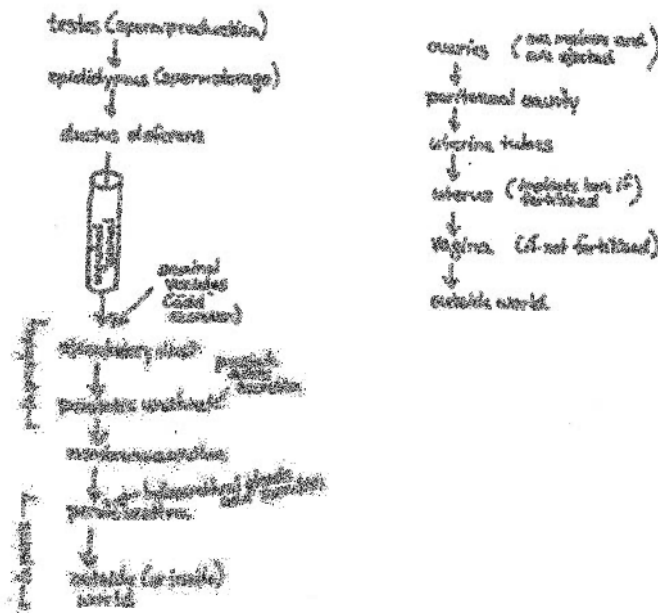 testes (sperm production)
epididymus (sperm storage)
ductus deferens
seminal
vesicles
(add
secretion)
ejaculatory duct
prostate
adds
secretion
prostatic urethra
membranous urethra
bulbourethral glands
add secretion
penile urethra
outside (or inside)
world
ovaries (ova mature and
are ejected
peritoneal cavity
uterine tubes
uterus (implants here if
fertilized
vagina (if not fertilized)
outside world